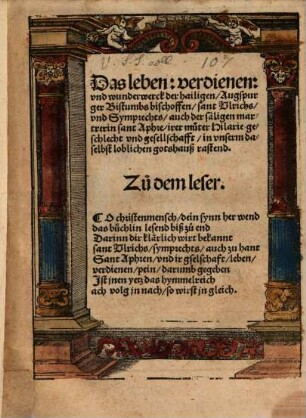 Das leben: verdienen:
vnd wunderwerck der hailigen/Augspur
ger Bistumbs bischoffen/sant Vlrichs/
vnd Symprechts/auch der säligen mar
trerin sant Aphre/irer můter Hilarie ge
schlecht vnd gesellschafft/in vnserm da
selbst loblichen gotshauß rastend.
Zů dem leser.
O christenmensch/dein synn her wend
das büchlin lesend biß zů end
Darinn dir klärlich wirt bekannt
sant Vlrichs/symprechts/auch zu hant
Sant Aphren/vnd ir gselschaft/leben/
verdienen/pein/darumb gegeben
Ist jnen yetz das hymmelreich
ach volg in nach/so wirst jn gleich.